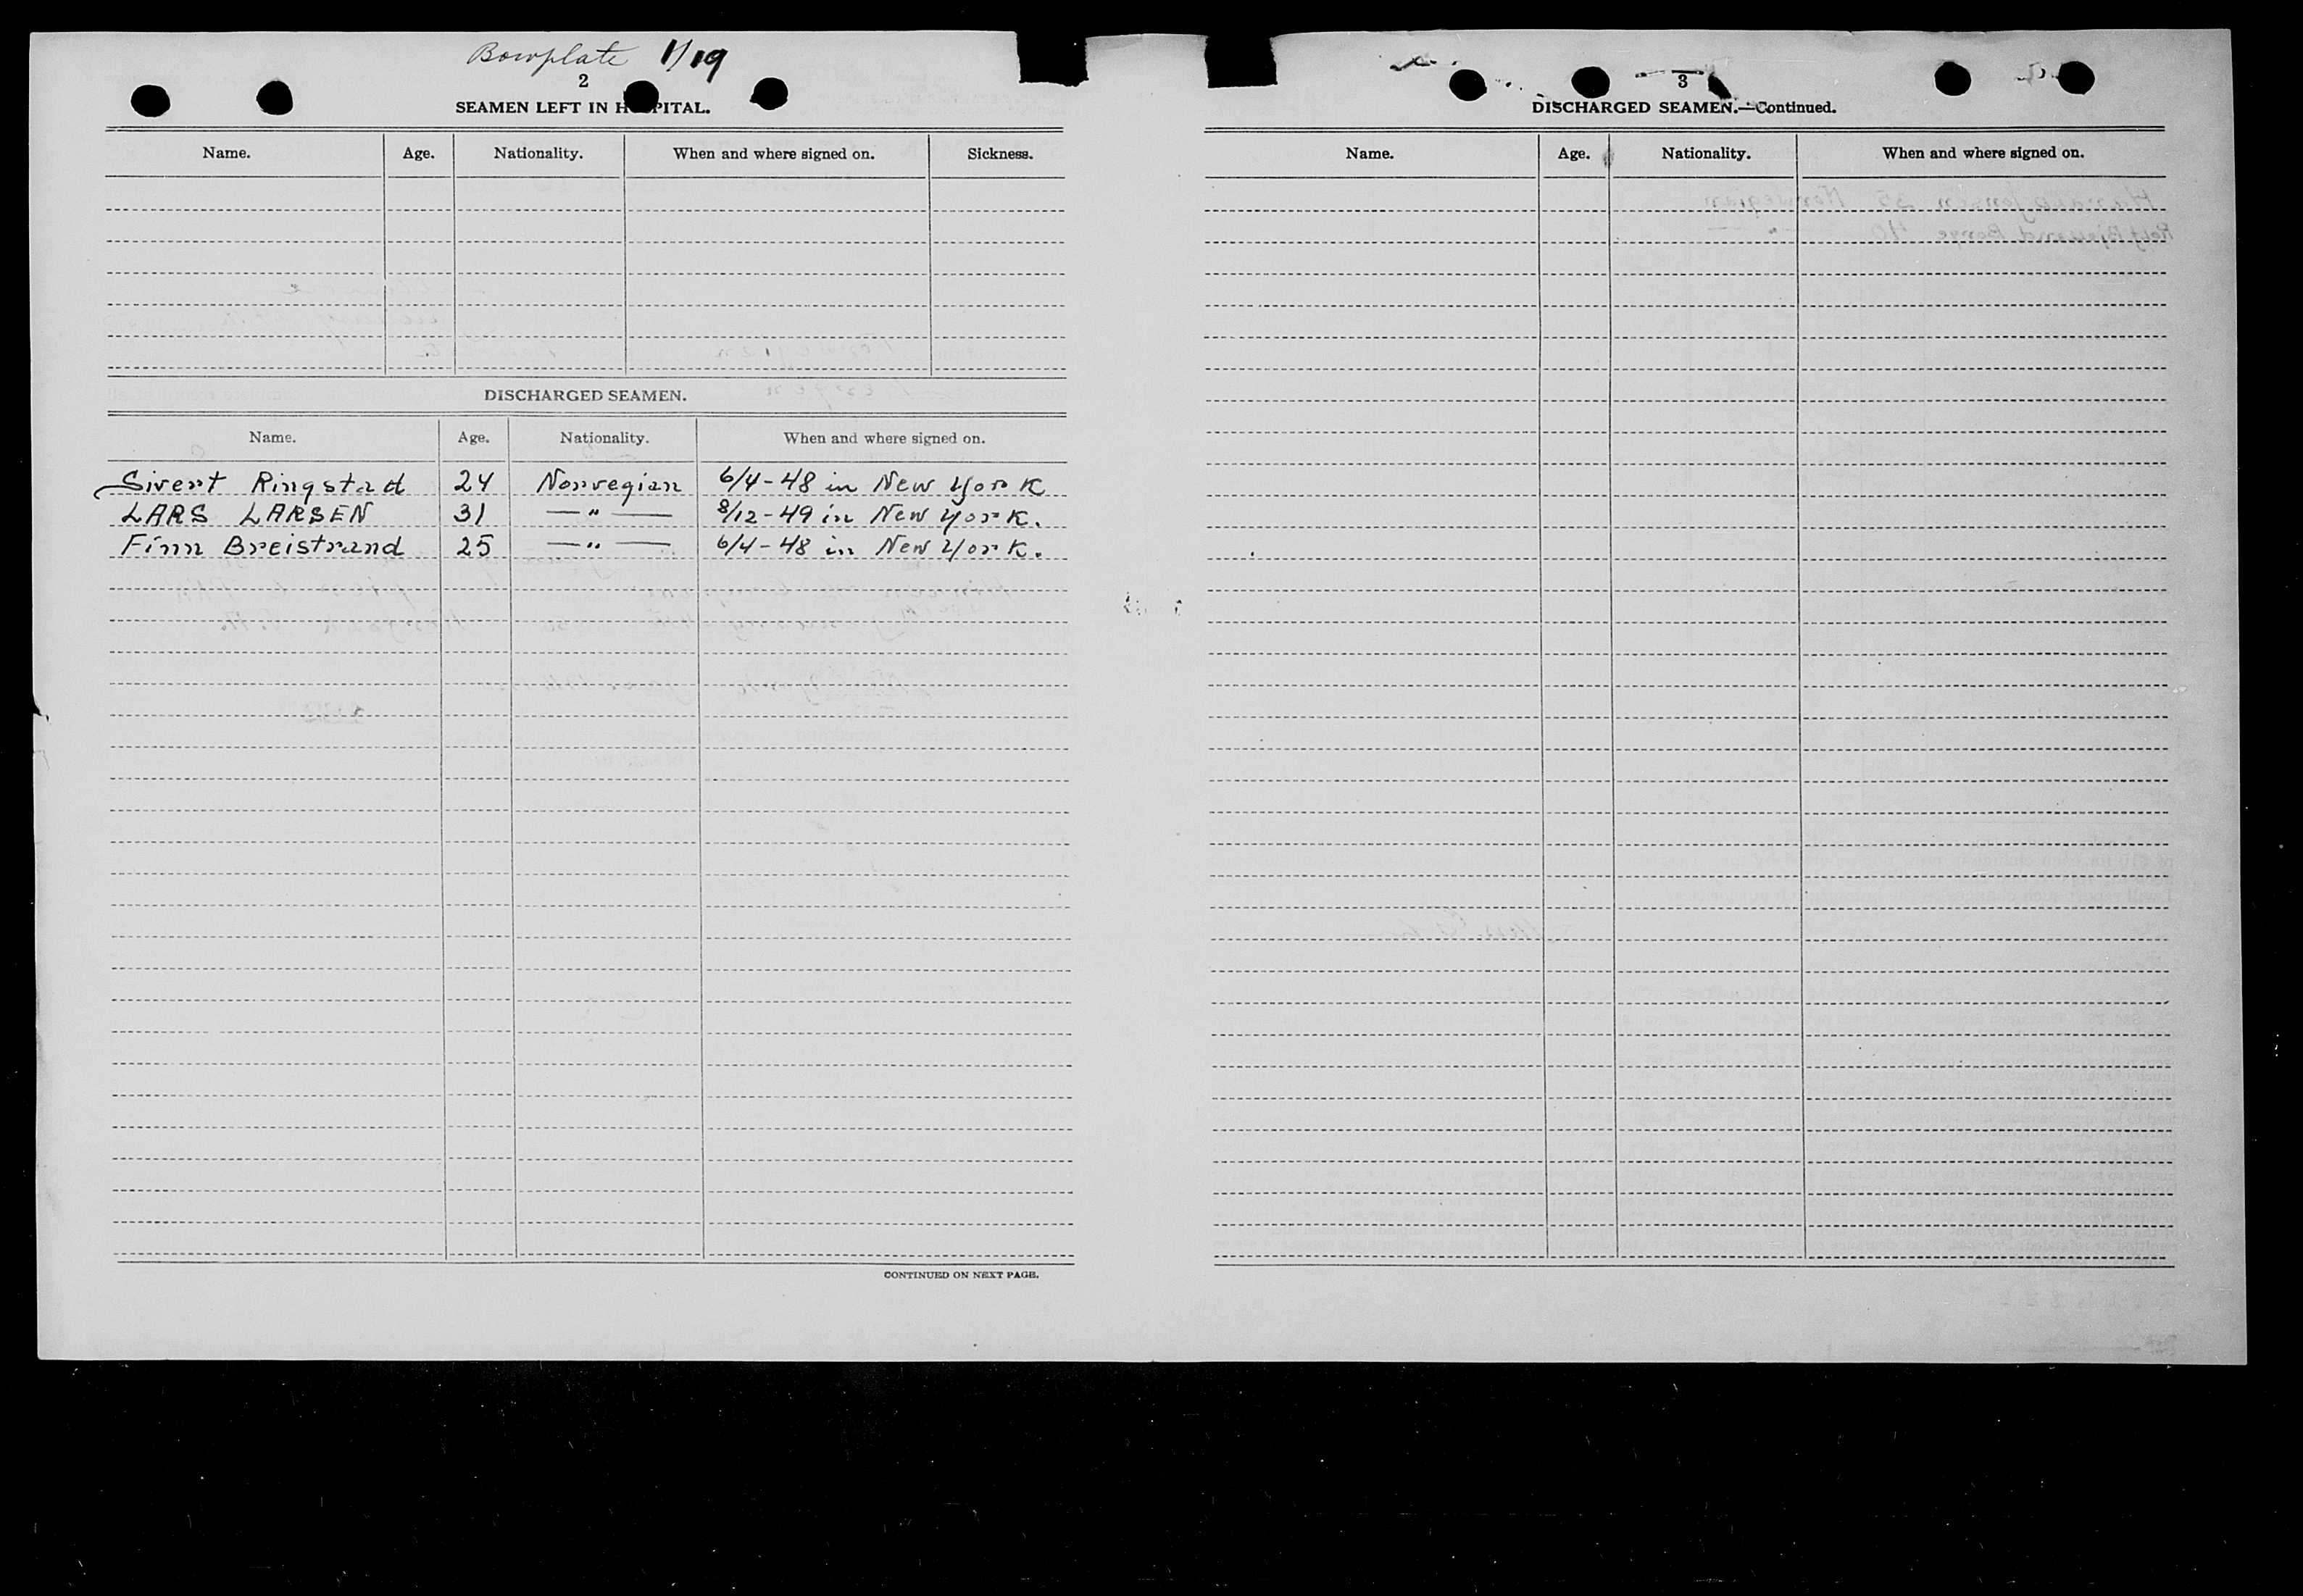 Bowplate 1/19
2
SEAMEN LEFT IN HOSPITAL.
Name. Age. Nationality. When and where signed on. Sickness.
DISCHARGED SEAMEN.
Name. Age. Nationality. When and where signed on.
Sivert Ringstad 24 Norvegian 6/4-48 in New York
LARS LARSEN 31 —"— 8/12-49 in New York.
Finn Breistrand 25 —"— 6/4-48 in New York.
CONTINUED ON NEXT PAGE.
3
DISCHARGED SEAMEN.—Continued.
Name. Age. Nationality. When and where signed on.